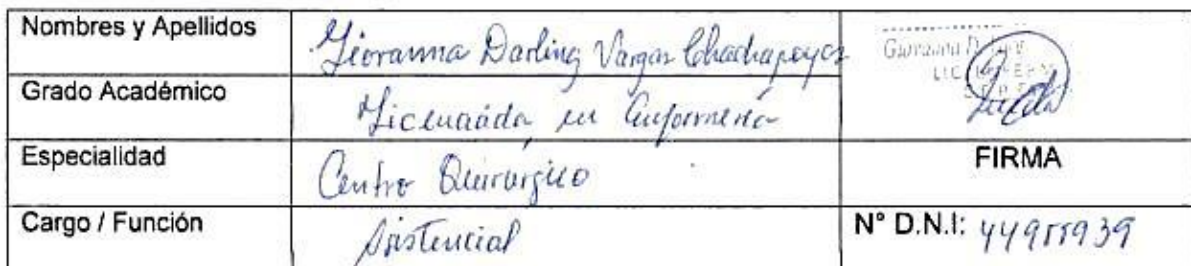 Nombres y Apellidos Giovanna Darling Vargas Chachapoyas
Grado Académico Licenciada en Enfermería
Especialidad Centro Quirúrgico FIRMA
Cargo / Función Asistencial N° D.N.I: 44955939